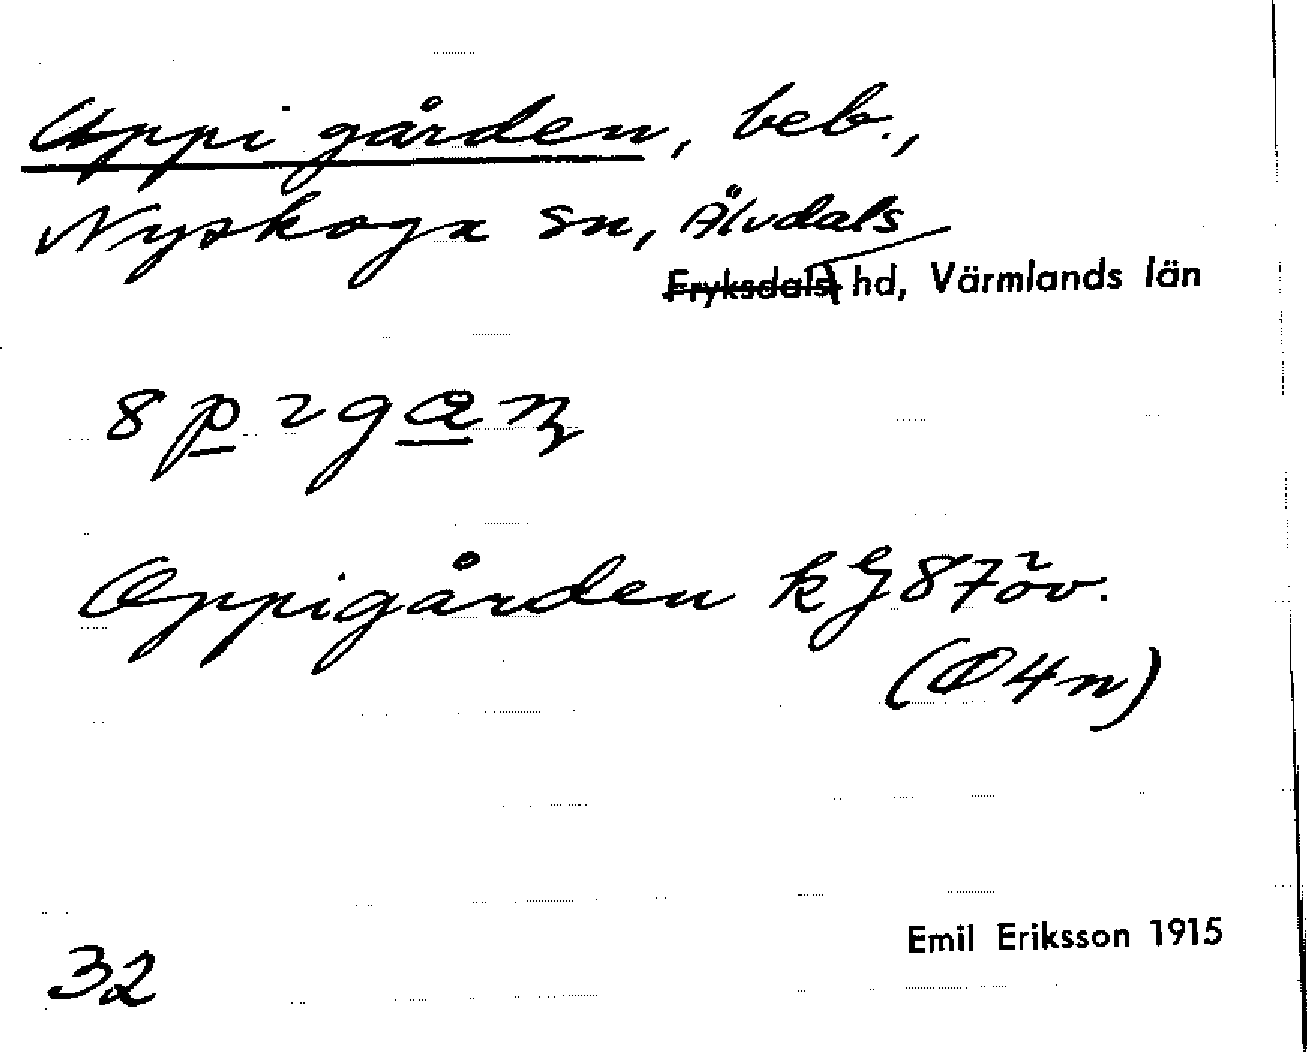 Uppi gården, beb.,
Nyskoga sn, Älvdals
Fryksdals hd, Värmlands län
Oppigården
32
Emil Eriksson 1915